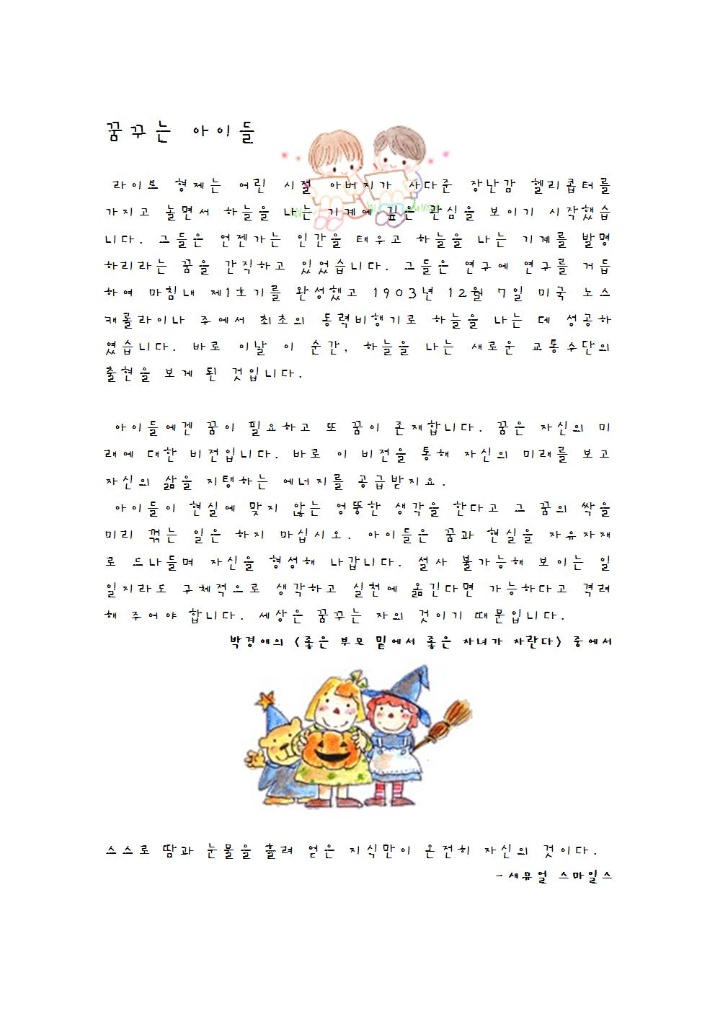 꿈꾸는 아이들
라이트 형제는 어린 시절 아버지가 사다준 장난감 헬리콥터를
가지고 놀면서 하늘을 나는 기계에 깊은 관심을 보이기 시작했습
니다. 그들은 언젠가는 인간을 태우고 하늘을 나는 기계를 발명
하리라는 꿈을 간직하고 있었습니다. 그들은 연구에 연구를 거듭
하여 마침내 제1호기를 완성했고 1903년 12월 7일 미국 노스
캐롤라이나 주에서 최초의 동력비행기로 하늘을 나는 데 성공하
였습니다. 바로 이날 이 순간, 하늘을 나는 새로운 교통수단의
출현을 보게 된 것입니다.
아이들에겐 꿈이 필요하고 또 꿈이 존재합니다. 꿈은 자신의 미
래에 대한 비전입니다. 바로 이 비전을 통해 자신의 미래를 보고
자신의 삶을 지탱하는 에너지를 공급받지요.
아이들이 현실에 맞지 않는 엉뚱한 생각을 한다고 그 꿈의 싹을
미리 꺾는 일은 하지 마십시오. 아이들은 꿈과 현실을 자유자재
로 드나들며 자신을 형성해 나갑니다. 설사 불가능해 보이는 일
일지라도 구체적으로 생각하고 실천에 옮긴다면 가능하다고 격려
해 주어야 합니다. 세상은 꿈꾸는 자의 것이기 때문입니다.
박경애의 <좋은 부모 밑에서 좋은 자녀가 자란다> 중에서
스스로 땀과 눈물을 흘려 얻은 지식만이 온전히 자신의 것이다.
-새뮤얼 스마일스